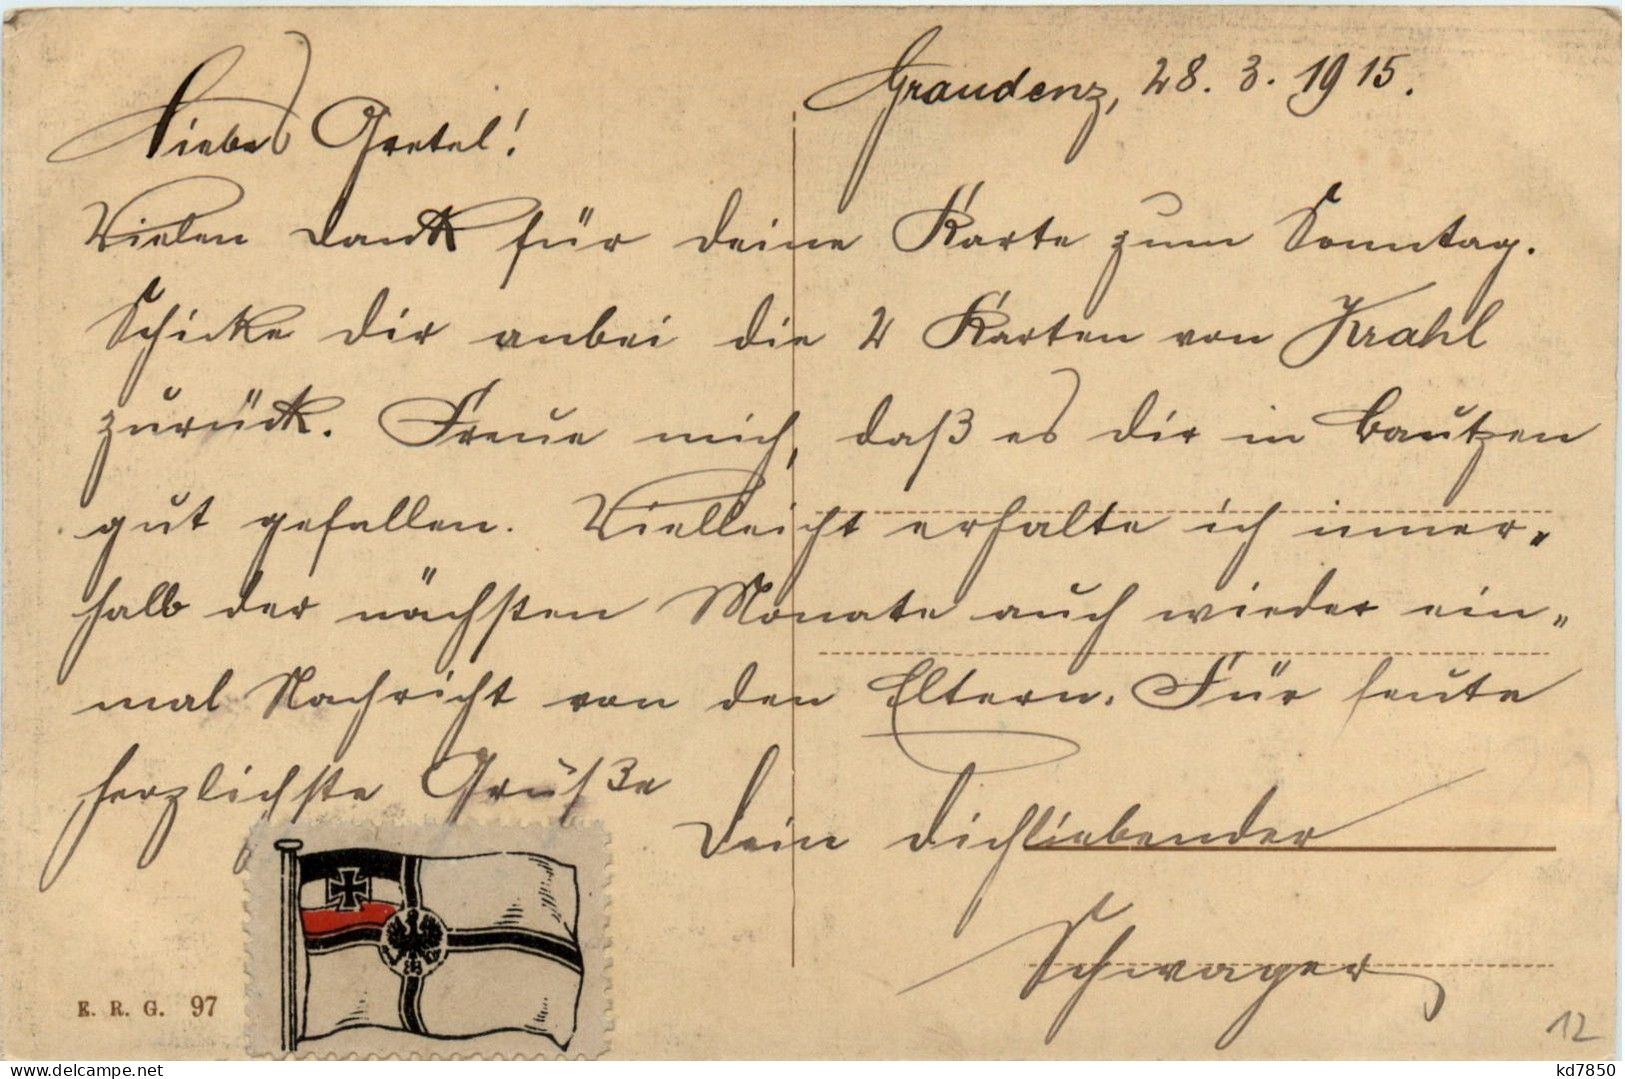 Graudenz, 28. 3. 1915.
Liebes Gretel!
Vielen Dank für deine Karte zum Sonntag.
Schicke dir anbei die 2 Karten von Krahl
zurück. Freue mich, daß es dir in Bautzen
gut gefallen. Vielleicht erhalte ich inner-
halb der nächsten Monate auch wieder ein-
mal Nachricht von den Eltern. Für heute
herzlichste Grüße
Dein dichliebender
Schwager
E. R. G. 97
12
kd7850